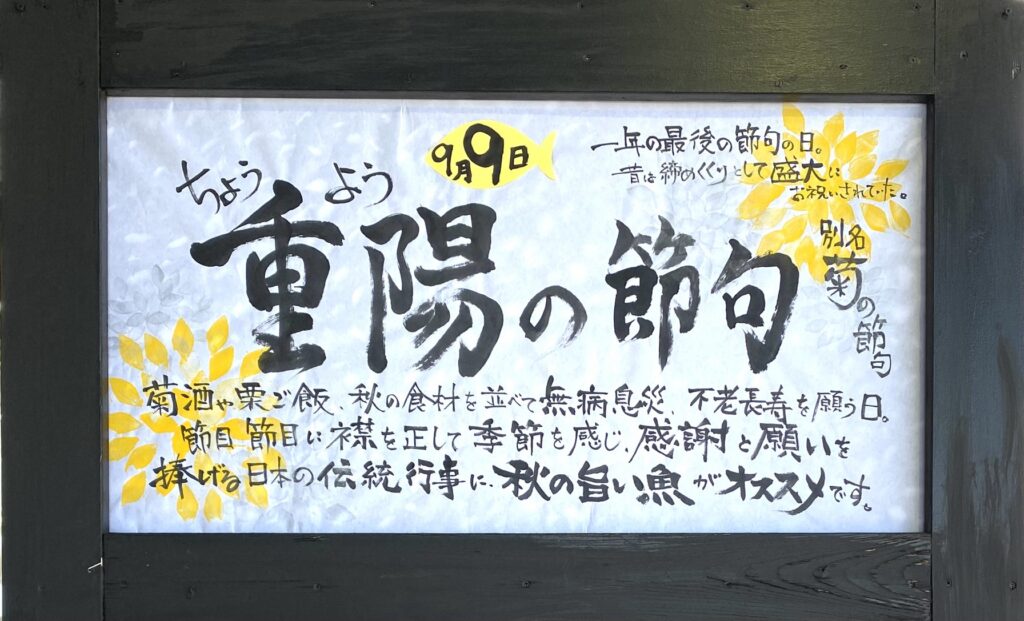 9月9日
一年の最後の節句の日。
昔は締めくくりとして盛大に
お祝いされていた。
ちょう よう
重陽の節句
別名
菊の節句
菊酒や栗ご飯、秋の食材を並べて無病息災、不老長寿を願う日。
節目節目に襟を正して季節を感じ、感謝と願いを
捧げる日本の伝統行事に、秋の旨い魚がオススメです。